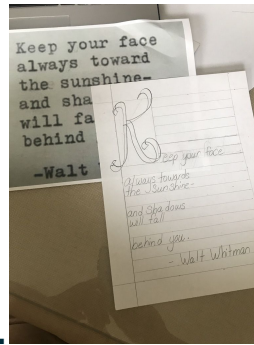 Keep your face
always toward
the sunshine-
and sha
will fa
behind
-Walt
Keep your face
always towards
the sunshine-
and shadows
will fall
behind you.
- Walt Whitman